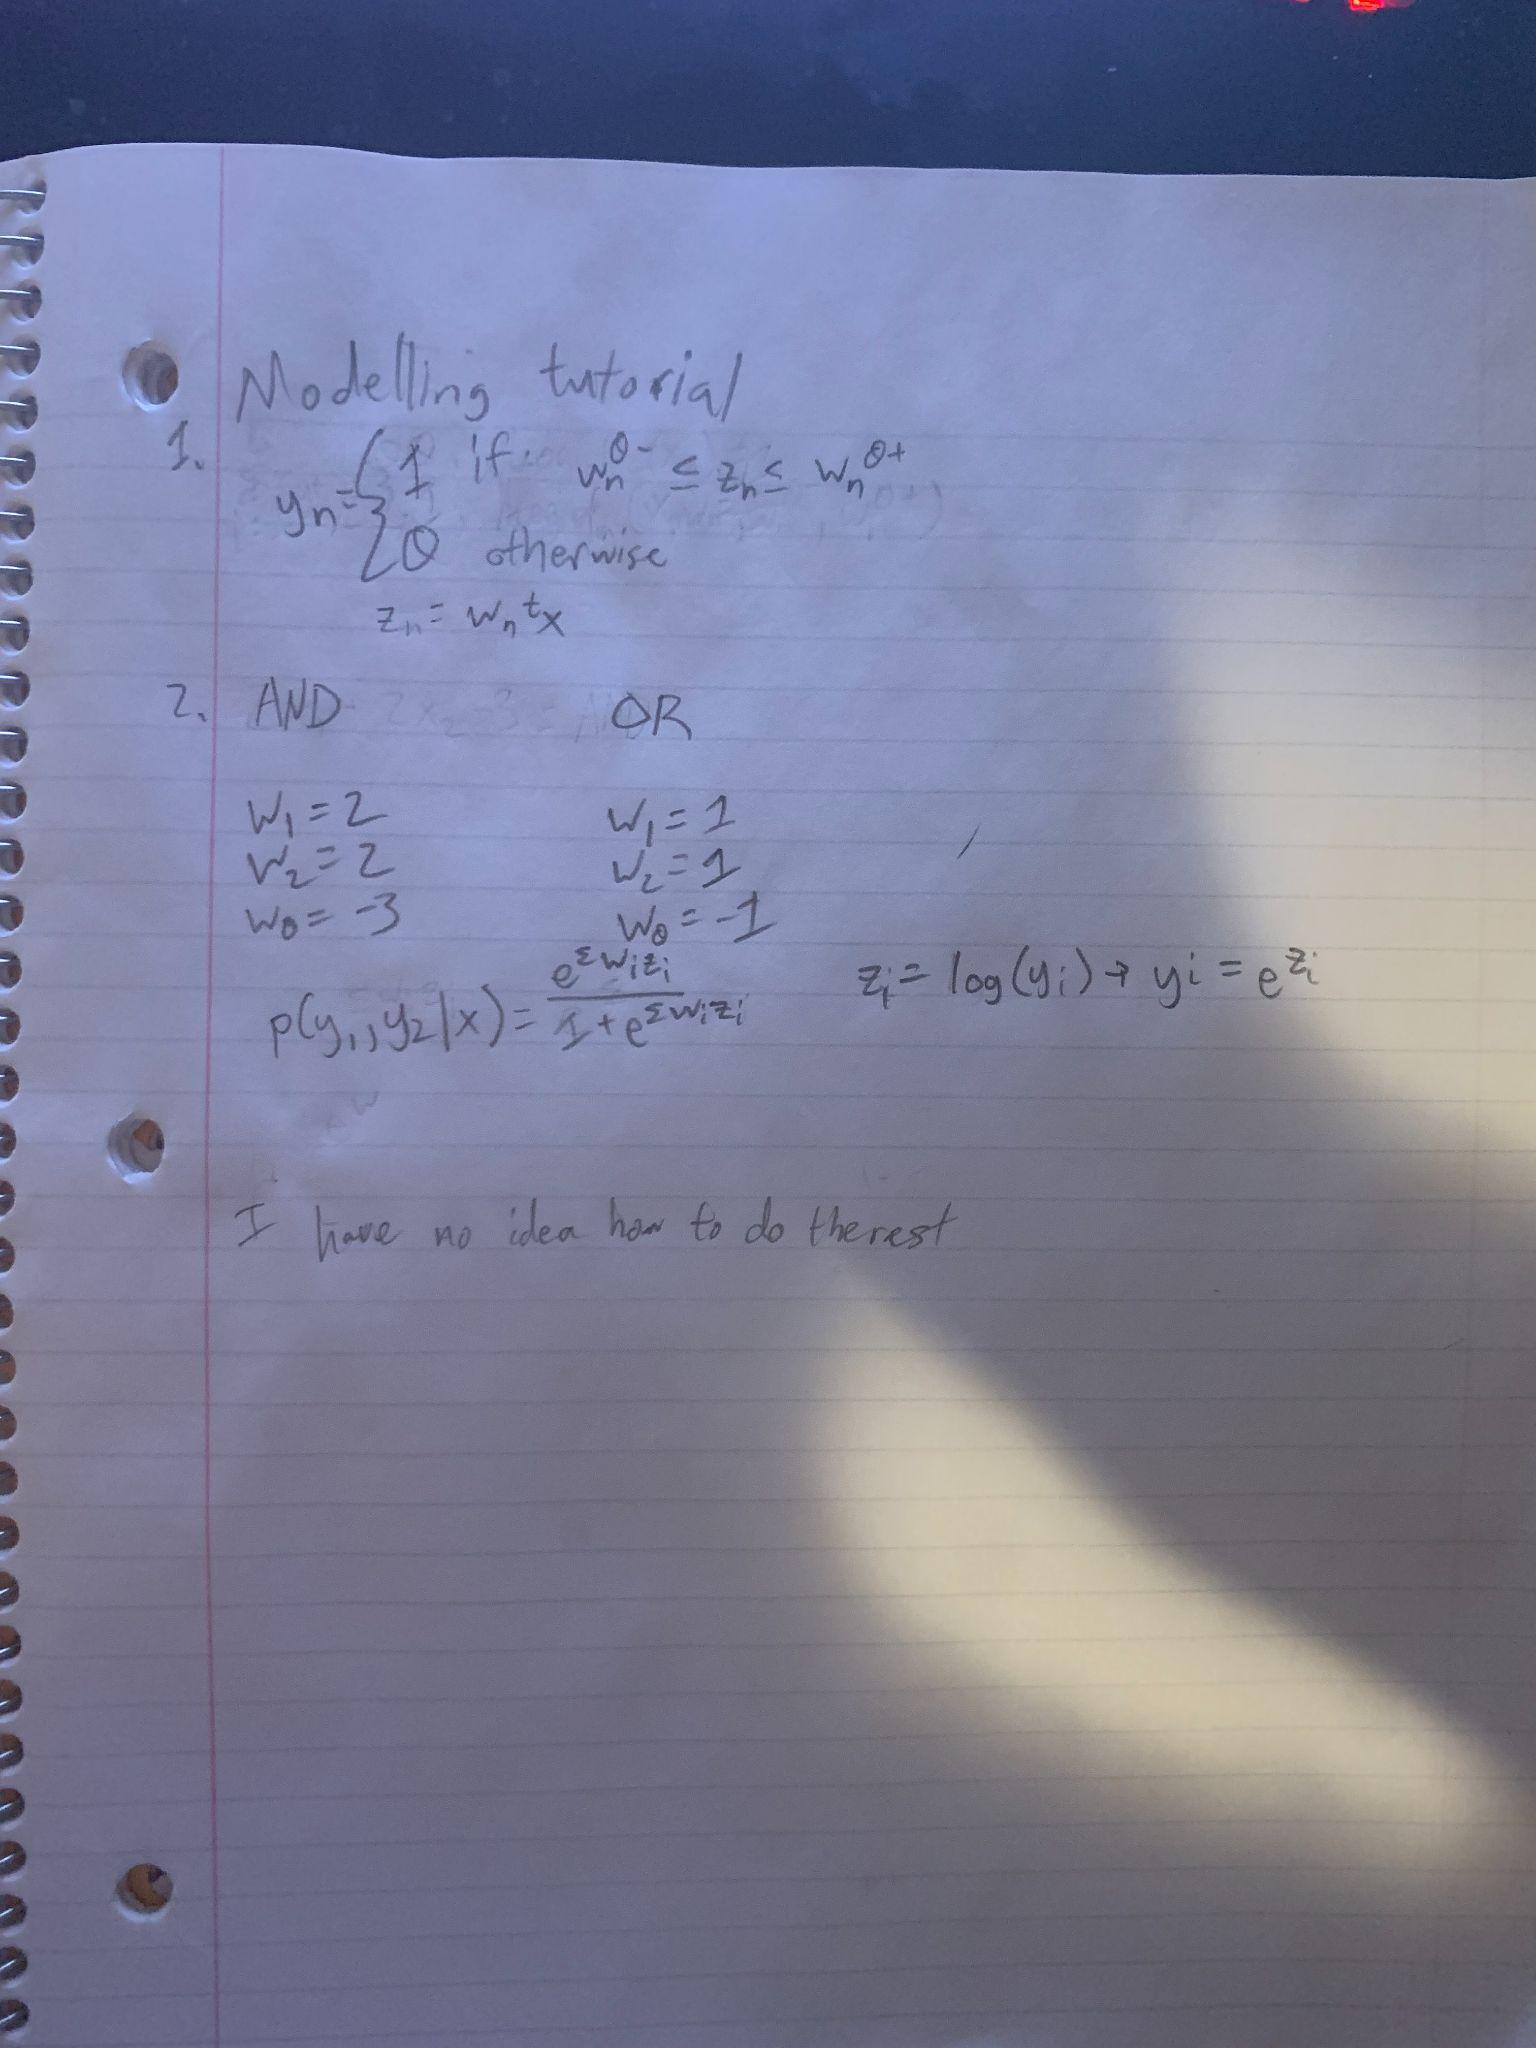 Modelling tutorial
1. yn = { 1 if wn^θ- ≤ zn ≤ wn^θ+
0 otherwise
zn = wn^t x
2. AND OR
W1 = 2 W1 = 1
W2 = 2 W2 = 1
W0 = -3 W0 = -1
p(y1, y2|x) = e^Σwizi / 1 + e^Σwizi zi = log(yi) → yi = e^zi
I have no idea how to do the rest